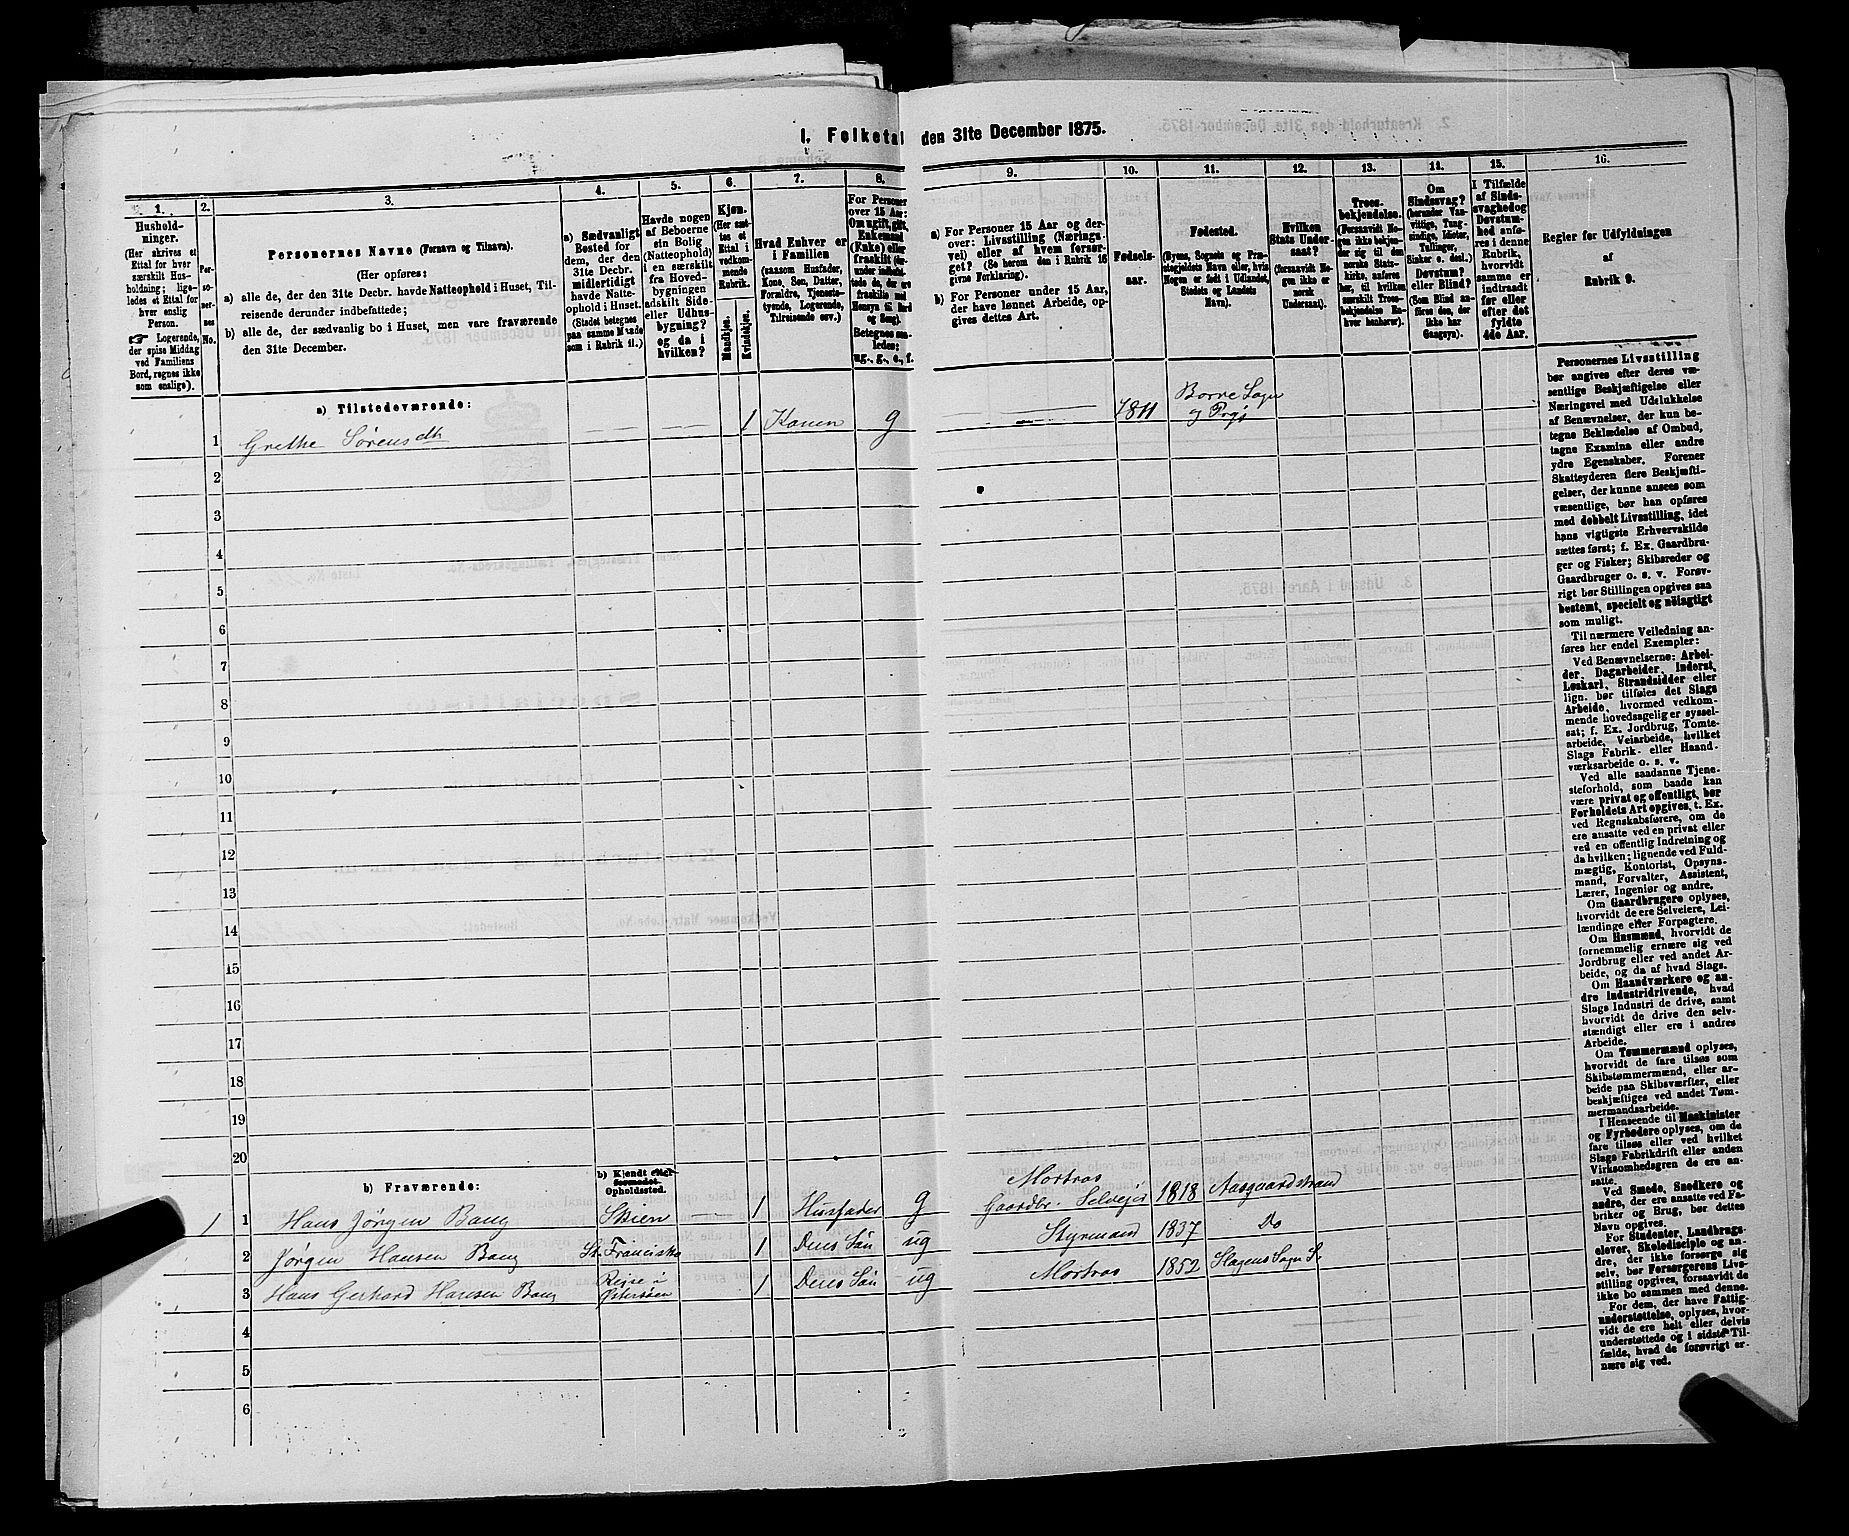 I. Folketal den 31te December 1875.
1.
Husholdninger.
(Her skrives et
Ettal for hver
særskilt Husholdning;
ligeledes et Ettal for
hver enslig
Person.
☞ Logerende,
der spise Middag
ved Familiens
Bord, regnes ikke
som enslige).
2.
Personernes
No.
3.
Personernes Navne (Fornavn og Tilnavn).
(Her opføres:
a) alle de, der den 31te Decbr. havde Natteophold i Huset, Tilreisende derunder indbefattede;
b) alle de, der sædvanlig bo i Huset, men vare fraværende
den 31te December.
4.
a) Sædvanligt
Bosted for
dem, der den
31te Decbr.
midlertidigt
havde Natteophold i Huset.
(Stedet betegnes
paa samme Maade
som i Rubrik 11.)
5.
Havde nogen
af Beboerne
sin Bolig
(Natteophold)
i en særskilt
fra Hovedbygningen
adskilt Side-
eller Udhusbygning?
og da i
hvilken?
6.
Kjøn.
(Her sættes et
Ettal i
vedkommende
Rubrik.
Mandkjøn.
Kvindekjøn.
7.
Hvad Enhver er
i Familien
(saasom Husfader,
Kone, Søn, Datter,
Forældre, Tjenestetyende, Logerende,
Tilreisende osv.)
8.
For Personer
over 15 Aar:
Om ugift, gift,
Enkemand
(Enke) eller
fraskilt
9.
a) For Personer 15 Aar og derover: Livsstilling (Næringsvei) eller af hvem forsørget? (Se herom den i Rubrik 16
givne Forklaring).
b) For Personer under 15 Aar,
der have lønnet Arbeide, opgives dettes Art.
10.
Fødselsaar.
11.
Fødested.
(Byens, Sognets og Præstegjeldets Navn eller, hvis
Nogen er født i Udlandet,
Stedets og Landets
Navn).
12.
Hvilken
Stats Undersaat?
(forsaavidt Nogen ikke er
norsk
Undersaat).
13.
Troesbekjendelse.
(Forsaavidt Nogen ikke bekjender sig til den
norske Statskirke, anføres
her, til hvilken
særskilt Troesbekjendelse Enhver henhører).
14.
Om
Sindssvag?
(herunder Vanvittige, Tungsindige, Idioter,
Tullinger,
Sinker o. desl.)
Døvstum?
eller Blind?
(Som Blind anføres den, der
ikke har
Gangsyn).
15.
I Tilfælde
af Sindssvaghed og
Døvstumhed anføres i denne
Rubrik,
hvorvidt
samme er
indtraadt
før eller
efter det
fyldte
4de Aar.
16.
Regler for Udfyldningen
af
Rubrik 9.
a) Tilstedeværende:
1 Grethe Sørensdtr — — 1 Konen g — 1811 Borre Sogn
og Prgj
2
3
4
5
6
7
8
9
10
11
12
13
14
15
16
17
18
19
20
b) Fraværende:
b) Kjendt eller
formodet
Opholdssted.
1 1 Hans Jørgen Bang Skien — 1 Husfader g Matros
Gaardbr. Selveier 1818 Aasgaardstrand
2 Jørgen Hansen Bang St. Francisko 1 Deres Søn ug Styrmand 1837 Do
3 Hans Gerhard Hansen Bang Reise i
Østersøen 1 Deres Søn ug Matros 1852 Slagens Sogn
4
5
6
Personernes Livsstilling
bør angives efter deres væsentlige Beskjæftigelse eller
Næringsvei med Udelukkelse
af Benævnelser, der kun betegne Beklædelse af Ombud,
tagne Examina eller andre
ydre Egenskaber. Forener
Skatteyderen flere Beskjæftigelser, der kunne ansees som
væsentlige, bør han opføres
med dobbelt Livsstilling, idet
hans vigtigste Erhvervskilde
sættes først; f. Ex. Gaardbruger og Fisker; Skibsreder og
Gaardbruger o. s. v. Forøvrigt bør Stillingen opgives saa
bestemt, specielt og nøiagtigt
som muligt.
Til nærmere Veiledning anføres her endel Exempler:
Ved Benævnelserne: Arbeider, Dagarbeider, Inderst,
Løskarl, Strandsidder eller
lign. bør tilføies det Slags
Arbeide, hvormed vedkommende hovedsagelig er sysselsat; f. Ex. Jordbrug, Tomtearbeide, Veiarbeide, hvilket
Slags Fabrik- eller Haandværksarbeide o. s. v.
Ved alle saadanne Tjenesteforhold, som baade kan
være privat og offentligt, bør
Forholdets Art opgives, t. Ex.
ved Regnskabsførere, om de
ere ansatte ved en privat eller
ved en offentlig Indretning og
da hvilken; lignende ved Fuldmægtig, Kontorist, Opsynsmand, Forvalter, Assistent,
Lærer, Ingeniør og andre.
Om Gaardbrugere oplyses,
hvorvidt de ere Selveiere, Leilændinge eller Forpagtere.
Om Husmænd, hvorvidt de
fornemmelig ernære sig ved
Jordbrug eller ved andet Arbeide, og da af hvad Slags.
Om Haandværkere og andre Industridrivende, hvad
Slags Industri de drive, samt
hvorvidt de drive den selvstændigt eller ere i andres
Arbeide.
Om Tømmermænd oplyses,
hvorvidt de fare tilsøs som
Skibstømmermænd, eller arbeide paa Skibsværfter, eller
beskjæftiges ved andet Tømmermandsarbeide.
I Henseende til Maskinister
og Fyrbødere oplyses, om de
fare tilsøs eller ved hvilket
Slags Fabrikdrift eller anden
Virksomhedsgren de ere ansatte.
Ved Smede, Snedkere og
andre, der ere ansatte ved Fabriker og Brug, bør dettes
Navn opgives.
For Studenter, Landbrugselever, Skoledisciple og andre, der ikke forsørge sig
selv, bør Forsørgerens Livsstilling opgives, forsaavidt de
ikke bo sammen med denne.
For dem, der have Fattigunderstøttelse, oplyses, hvorvidt de ere helt eller delvis
understøttede og i sidste Tilfælde, hvad de forøvrigt ernære sig ved.